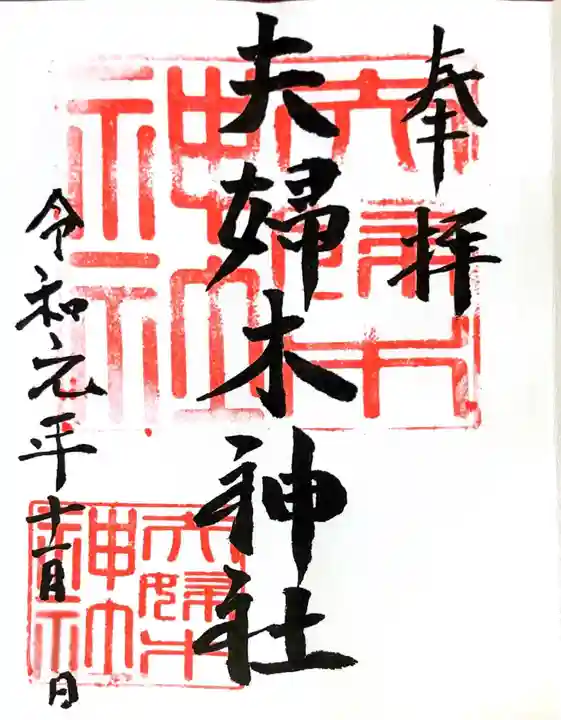 奉拝
夫婦木神社
令和元年十一月 日
夫婦木
神社
夫婦木
神社